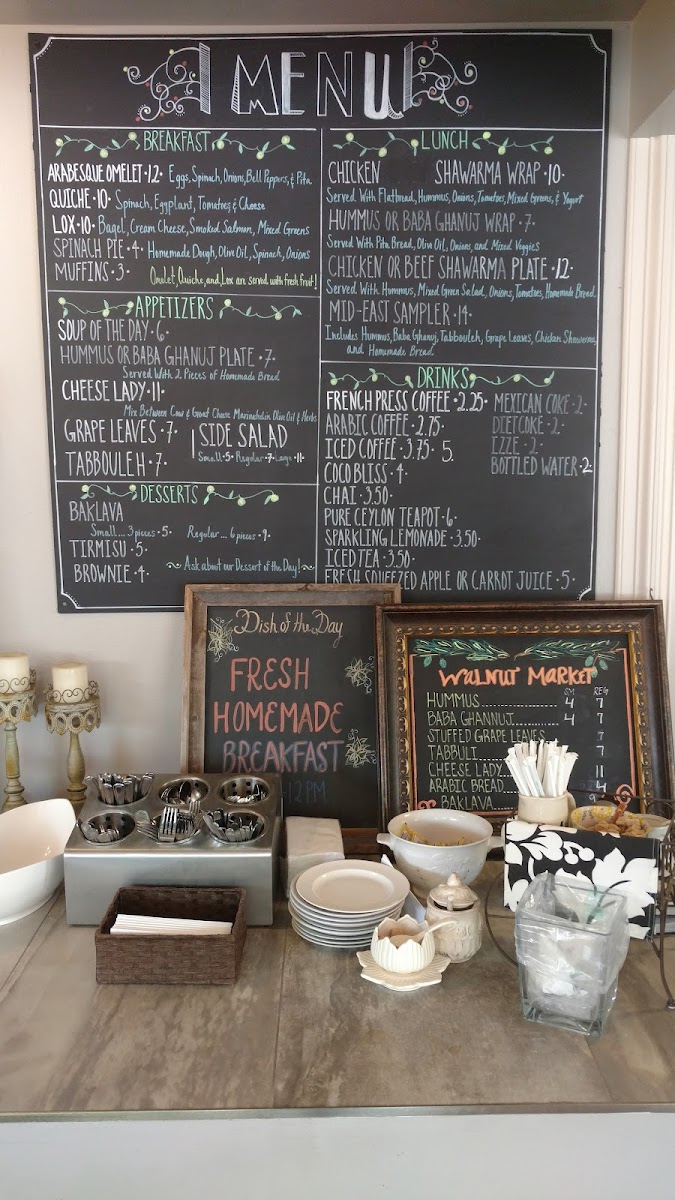 MENU
BREAKFAST
ARABESQUE OMELET · 12 · Eggs, Spinach, Onions, Bell Peppers, & Pita
QUICHE · 10 · Spinach, Eggplant, Tomatoes, & Cheese
LOX · 10 · Bagel, Cream Cheese, Smoked Salmon, Mixed Greens
SPINACH PIE · 4 · Homemade Dough, Olive Oil, Spinach, Onions
MUFFINS · 3 ·
Omelet, Quiche, and Lox are served with fresh fruit!
APPETIZERS
SOUP OF THE DAY · 6 ·
HUMMUS OR BABA GHANUJ PLATE · 7 ·
Served With 2 Pieces of Homemade Bread
CHEESE LADY · 11 ·
Mix Between Cow & Goat Cheese Marinated in Olive Oil & Herbs
GRAPE LEAVES · 7 ·
TABBOULEH · 7 ·
SIDE SALAD
Small · 5 · Regular · 7 · Large · 11 ·
DESSERTS
BAKLAVA
Small... 3 pieces · 5 · Regular... 6 pieces · 9 ·
TIRMISU · 5 ·
BROWNIE · 4 ·
Ask about our Dessert of the Day!
LUNCH
CHICKEN SHAWARMA WRAP · 10 ·
Served With Flatbread, Hummus, Onions, Tomatoes, Mixed Greens, & Yogurt
HUMMUS OR BABA GHANUJ WRAP · 7 ·
Served With Pita Bread, Olive Oil, Onions, and Mixed Veggies
CHICKEN OR BEEF SHAWARMA PLATE · 12 ·
Served With Hummus, Mixed Green Salad, Onions, Tomatoes, Homemade Bread
MID-EAST SAMPLER · 14 ·
Includes Hummus, Baba Ghanuj, Tabbouleh, Grape Leaves, Chicken Shawerma,
and Homemade Bread
DRINKS
FRENCH PRESS COFFEE · 2.25 ·
ARABIC COFFEE · 2.75 ·
ICED COFFEE · 3.75 · 5.
COCO BLISS · 4 ·
CHAI · 3.50 ·
PURE CEYLON TEAPOT · 6 ·
SPARKLING LEMONADE · 3.50 ·
ICED TEA · 3.50 ·
FRESH SQUEEZED APPLE OR CARROT JUICE · 5 ·
MEXICAN COKE · 2 ·
DIET COKE · 2 ·
IZZE · 2 ·
BOTTLED WATER · 2 ·
Dish of the Day
FRESH
HOMEMADE
BREAKFAST
12PM
WALNUT MARKET
SM REG
HUMMUS 4 7
BABA GHANNUJ 4 7
STUFFED GRAPE LEAVES
TABBULI 7
CHEESE LADY 11
ARABIC BREAD 4
BAKLAVA 9